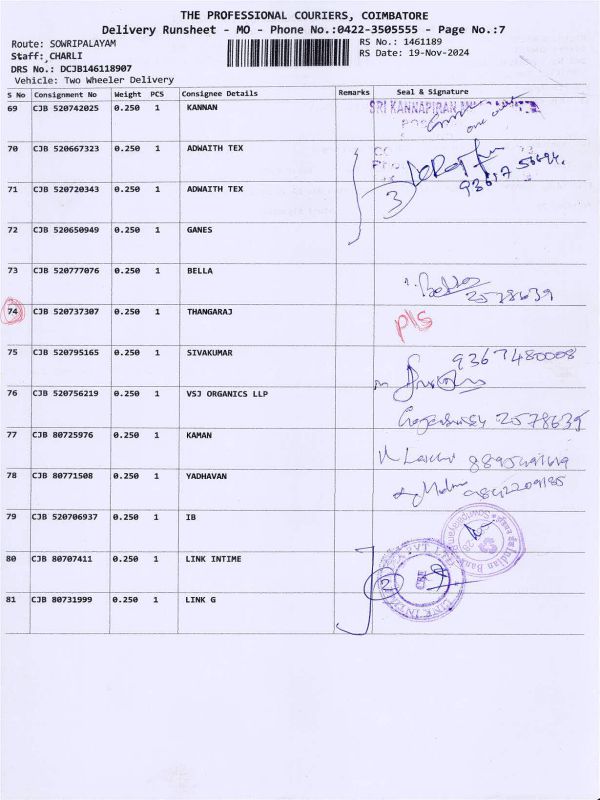 THE PROFESSIONAL COURIERS, COIMBATORE
Delivery Runsheet - MO - Phone No.:0422-3505555 - Page No.:7
Route: SOWRIPALAYAM
RS No.: 1461189
Staff: CHARLI
RS Date: 19-Nov-2024
DRS No.: DCJB146118907
Vehicle: Two Wheeler Delivery
S No Consignment No Weight PCS Consignee Details Remarks Seal & Signature
69 CJB 520742025 0.250 1 KANNAN SRI KANNAPIRAN
70 CJB 520667323 0.250 1 ADWAITH TEX
71 CJB 520720343 0.250 1 ADWAITH TEX 3
72 CJB 520650949 0.250 1 GANES
73 CJB 520777076 0.250 1 BELLA 2578639
74 CJB 520737307 0.250 1 THANGARAJ pls
75 CJB 520795165 0.250 1 SIVAKUMAR 9367480008
76 CJB 520756219 0.250 1 VSJ ORGANICS LLP 2578639
77 CJB 80725976 0.250 1 KAMAN
78 CJB 80771508 0.250 1 YADHAVAN 9842209185
79 CJB 520706937 0.250 1 IB Indian Bank
80 CJB 80707411 0.250 1 LINK INTIME 2
81 CJB 80731999 0.250 1 LINK G